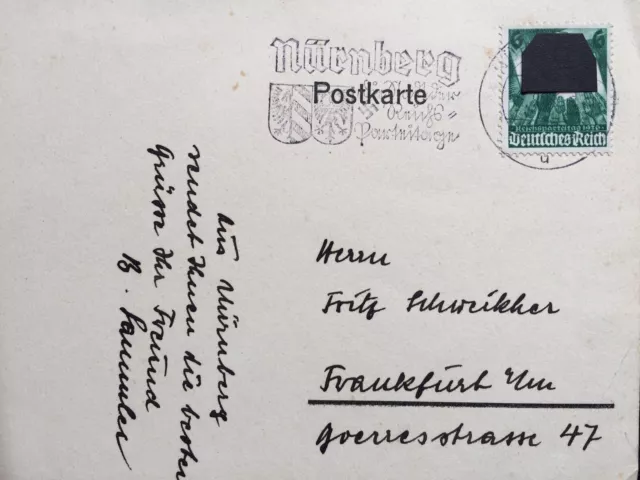 Nürnberg
die Stadt der
Reichs=
Parteitage
Postkarte
6 6
Reichsparteitag 1936
Deutsches Reich
u
Aus Nürnberg
sendet Ihnen die besten
Grüsse Ihr Freund
B. Sammler
Herrn
Fritz Schweikher
Frankfurt a/m
Goerresstrasse 47